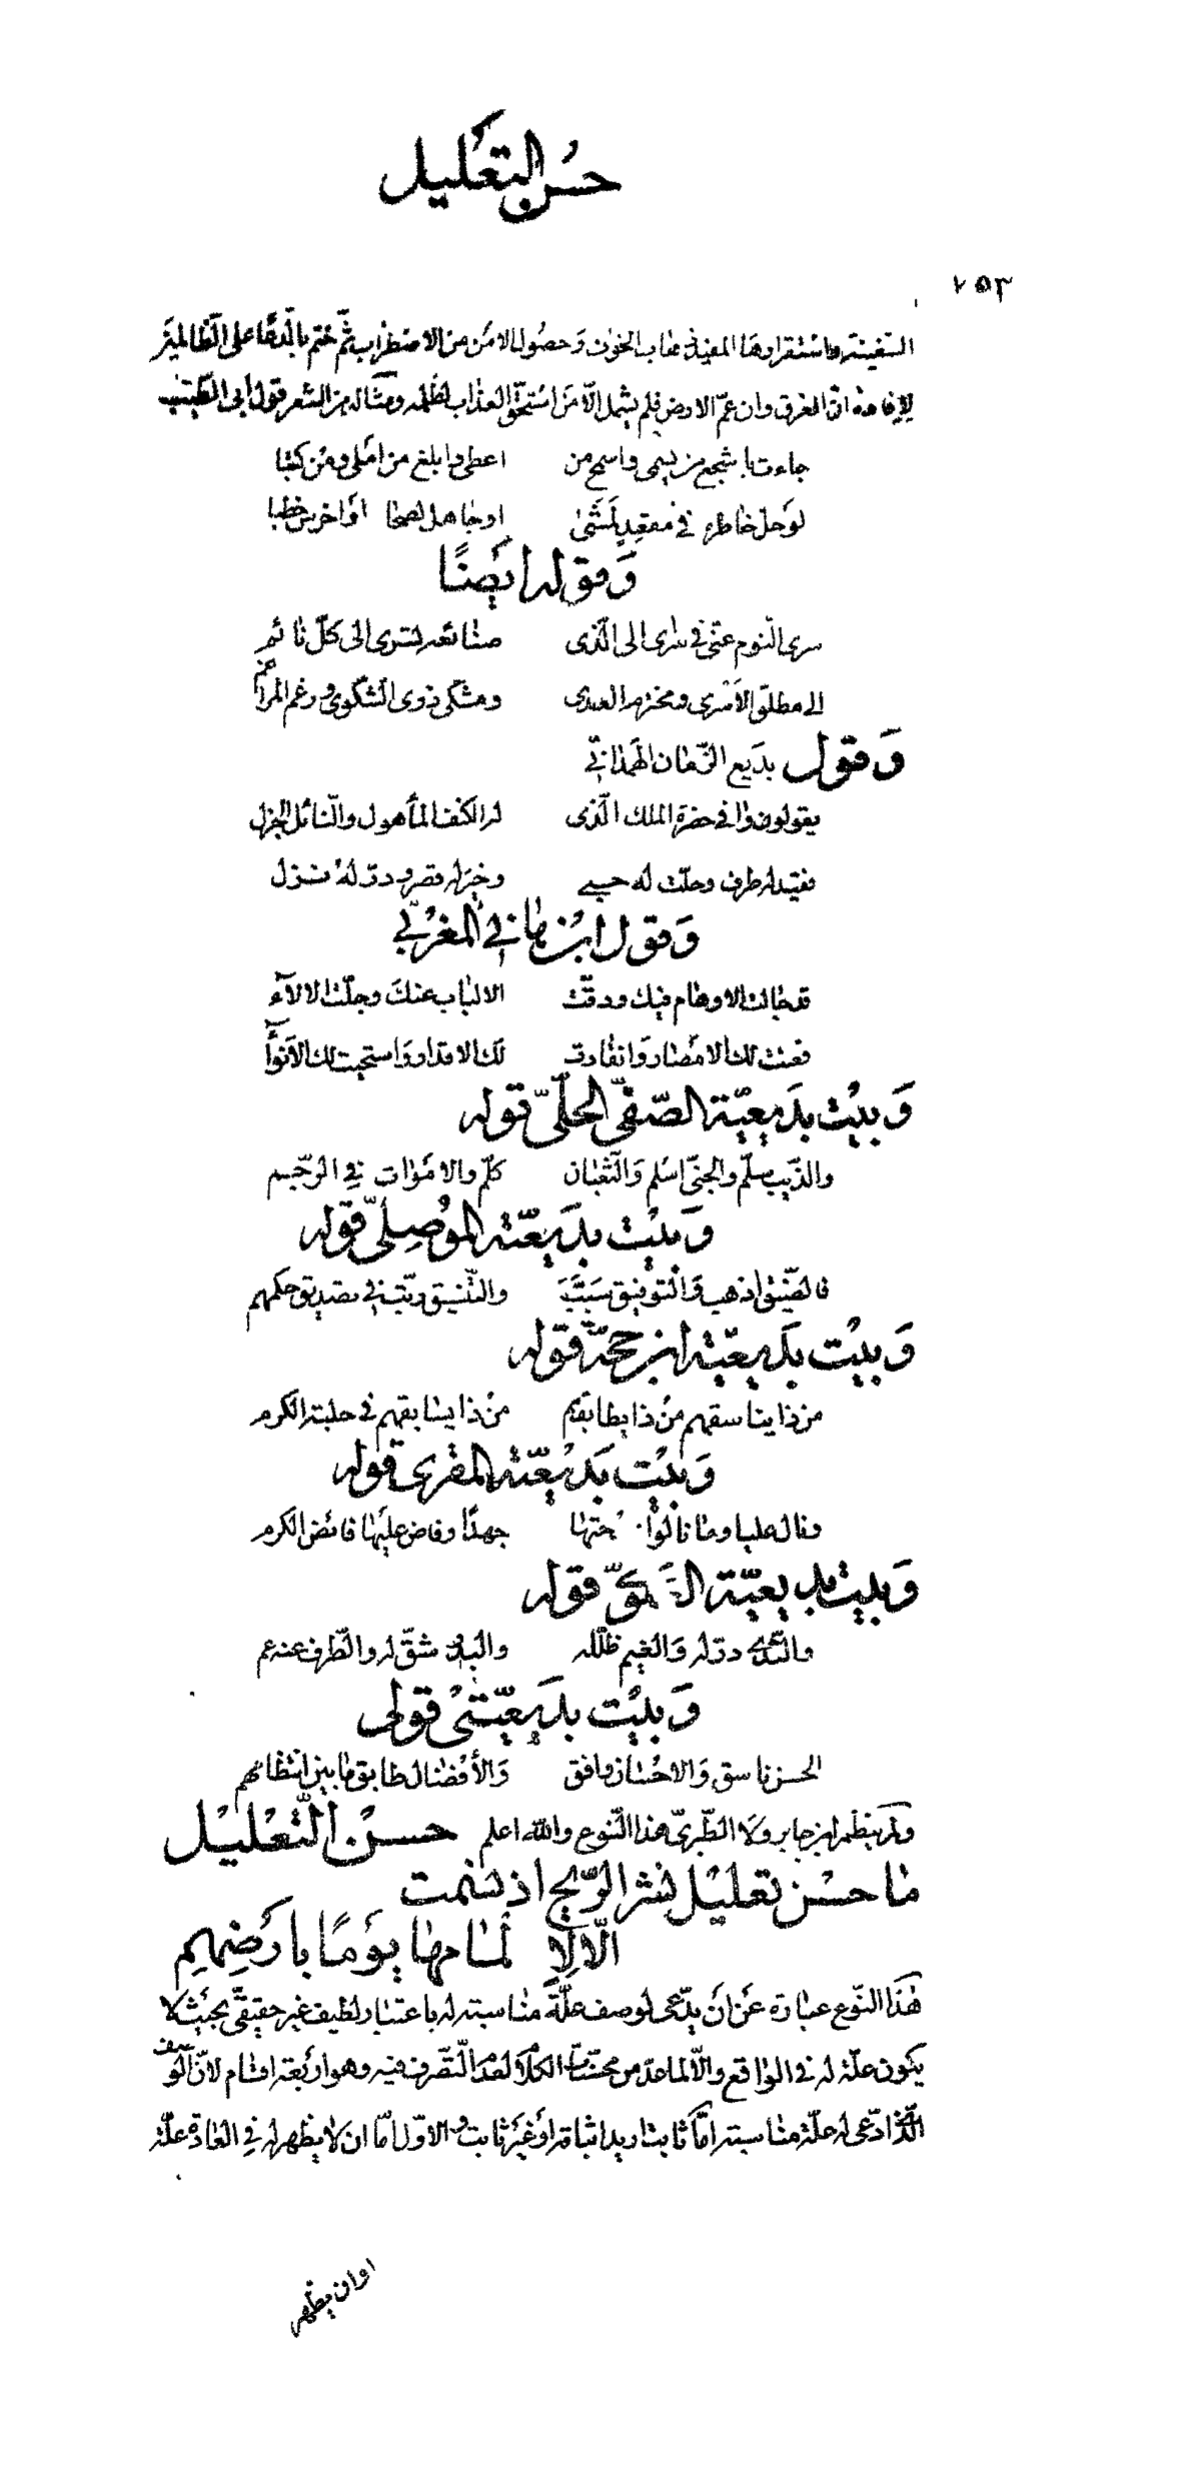 حسن التعليل
٧٥٣
السفينة واستقرارها المفيد ذهاب الخوف وَحصُول الامن من الاضطراب ثمّ ختم بالدّعَاء على الظّالمين
لإفادة انّ الغرق وان عمّ الارض فلم يشمل الّا مَن استحقّ العذاب لظلمه ومثاله من الشعر قول ابى الطيّب
جاءت باشجع من يسمى واسمح من اعطى وابلغ من املى ومن كتبا
لوَ حلّ خاطره في مقعد لمَشَى او جاهل لصحا اوَ اخرس خطبا
وَقوله ايَضًا
سرى النّوم عنّى فى سُراى الى الّذى صنائعه تسرى الى كلّ نائم
الى مطلق الأسرى ومخترم العدى ومشكى ذوى الشّكوى ورغم المراغم
وَقول بدَيع الزّمان الهَمذانيّ
يقولون وافى حضرة الملك الّذى له الكنف المأهول والنّائل الجزل
فقيد له طرف وحلّت له حبى وخيرله قصر ودرّ لهُ نزل
وَقول ابن هانئ المغربيّ
قد جالت الاوهام فيك فدقّت الالباب عنكَ وجلّت الالآء
فعنت لك الامصار وَانقادت لك الاقدار وَاستحيت لك الانَوآء
وَبيت بدَيعيّة الصّفيّ الحلّيّ قوله
والذّيب سلّم والجنّى اسلم وَالثّعبان كلّم والامَوات فى الرّجم
وَبيت بدَيعيّة الموُصِلىّ قوله
فالصّدّيق اذهب وَالتوفيق سَبّبَ والتّنسيق رتّب فى تصديق حكمهم
وَبيت بدَيعيّة ابن حجّة قوله
من ذا يناسقهم من ذا يطابقهم من ذا يسابقهم فى حلبة الكرم
وَبيت بَديعيّة المقرى قوله
ونال عليا وما نالوا جهدًا وفاض عليها فائض الكرم
وَبيت بديعيّة قوله
درّ له وَالغيم ظلّله والبدر شقّ له والطّرف عنه عم
وَبيت بدَيعيّتى قولى
الحسن ناسق وَالاحسان وافق وَالأفضال طابق ما بين انتظامهم
ولمَ ينظم ابن جابر ولَا الطّبرىّ هذا النّوع واللّه اعلم حسن التّعليل
ما حسن تعليل نشر الرّيح اذ نسمت
الّا لإلمامها يوَمًا بارَضِهِمِ
هَذا النّوع عبارة عَن انَ يدّعى لوصف علّة مناسبة له باعتبار لطيف غير حقيقىّ بحيث لا
يكون علّة له فى الواقع والّا لما عدّ من محسّنات الكلام لعدم التّصرف فيه وهو اربَعة اقسام لانّ الوصف
الّذى ادّعى له علّة مناسبة امّا ثابت اريد اثباته اوَ غيَر ثابت والاوّل امّا ان لا يظهر له فى العادة علّة
اوان يظهر